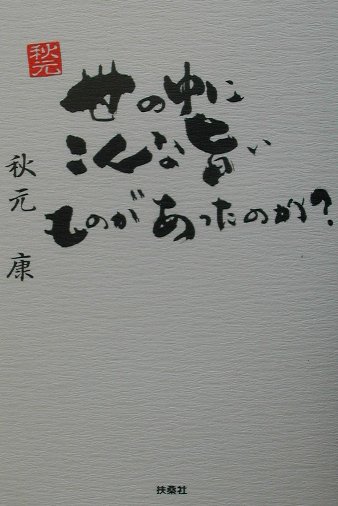 秋元
世の中に
こんな旨い
ものがあったのか?
秋元 康
扶桑社